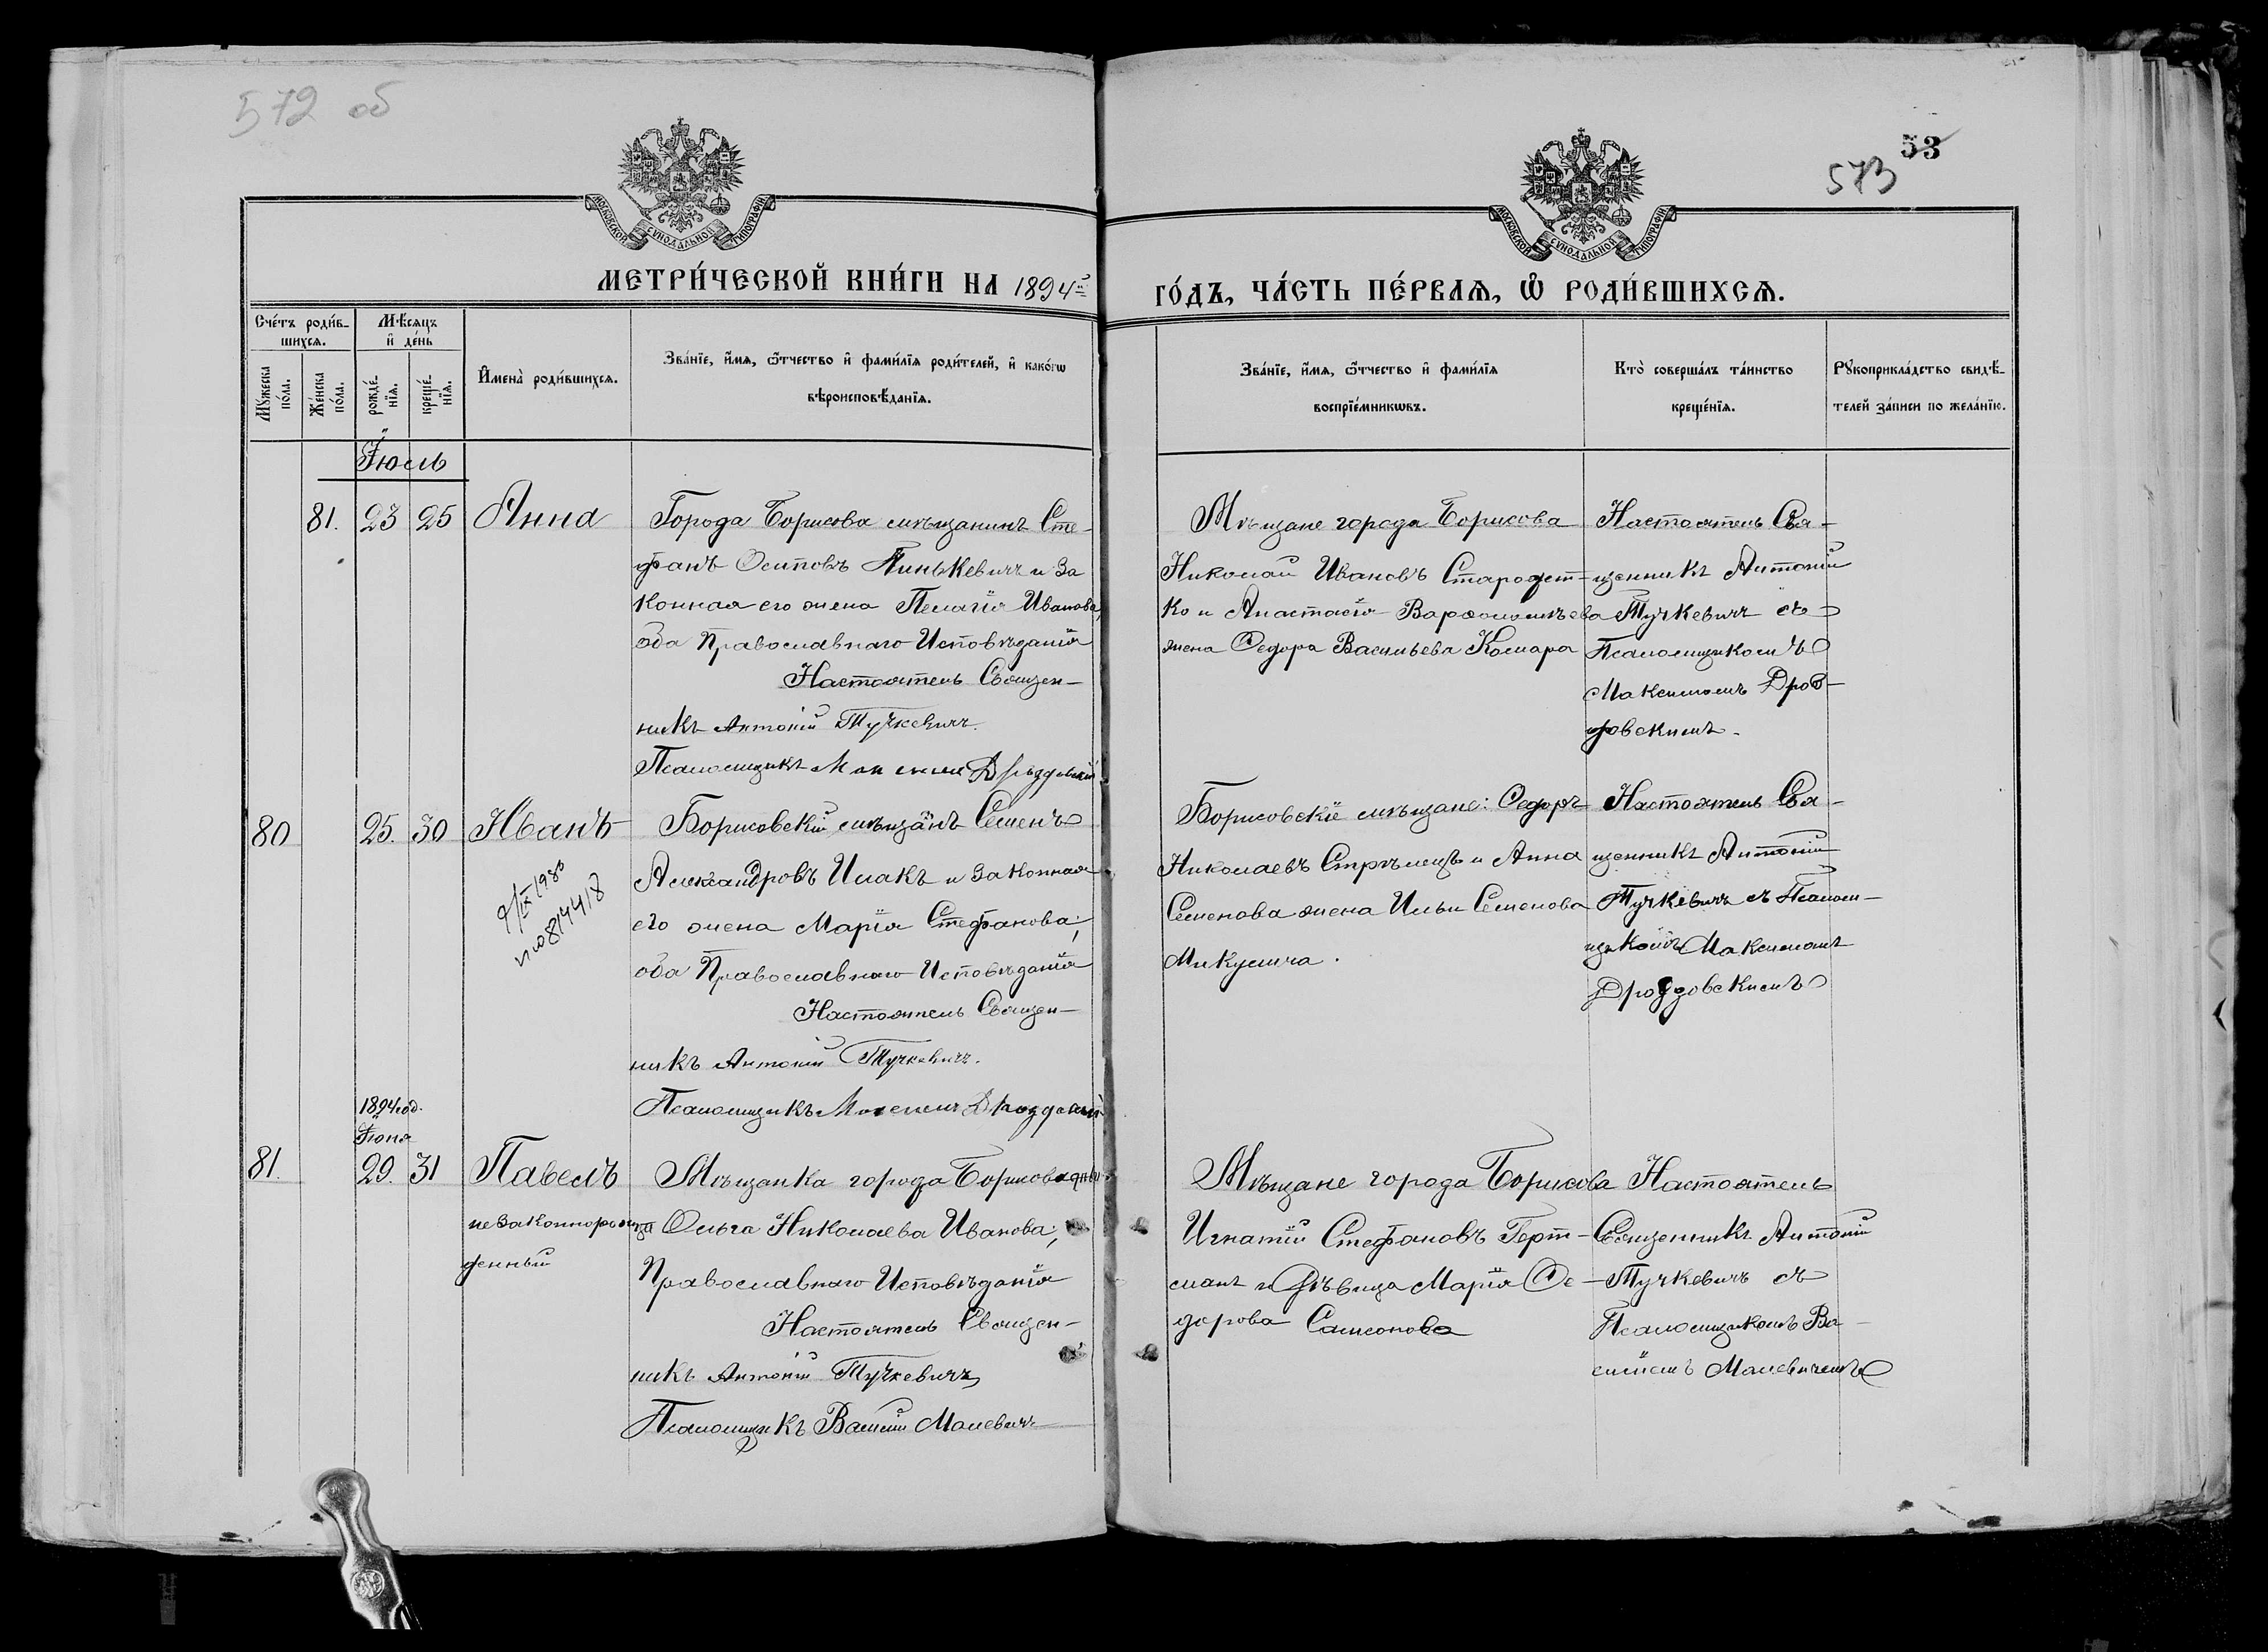 572 об
53
573
МОСКОВСКОЙ СУНОДАЛЬНОЙ ТИПОГРАФІИ
МОСКОВСКОЙ СУНОДАЛЬНОЙ ТИПОГРАФІИ
МЕТРИ́ЧЕСКОЙ КНИ́ГИ НА 1894й
ГО́ДЪ, ЧА́СТЬ ПЕ́РВАѦ, Ѡ҆ РОДИ́ВШИХСѦ.
Сче́тъ роди́в-
шихсѧ.
Мꙋ́жеска
по́ла.
Же́нска
по́ла.
Мѣ́сѧцъ
и҆ де́нь
рожде́-
нїѧ.
креще́-
нїѧ.
И҆мена̀ роди́вшихсѧ.
Зва́нїе, и҆́мѧ, ѻ҆́тчество и҆ фами́лїѧ роди́телей, и҆ како́гѡ
вѣроисповѣ́данїѧ.
Зва́нїе, и҆́мѧ, ѻ҆́тчество и҆ фами́лїѧ
воспрїе́мникѡвъ.
Кто̀ соверша́лъ та́инство
креще́нїѧ.
Рꙋкоприкла́дство свидѣ́-
телей за́писи по жела́нїю.
Іюль
81. 23 25 Анна
Города Борисова мѣщанинъ Сте-
фанъ Осиповъ Пинькевичъ и за
конная его жена Пелагія Иванова,
оба Православнаго Исповѣданія
Настоятель Священ-
никъ Антоній Тучкевичъ.
Псаломщикъ Максимъ Дроздовскій
Мѣщане города Борисова
Николай Ивановъ Стародет-
ко и Анастасія Варѳоломѣева
жена Ѳедора Васильева Комара
Настоятель Свя-
щенникъ Антоній
Тучкевичъ съ
Псаломщикомъ
Максимомъ Дроз-
довскимъ.
80 25. 30 Иванъ
9/IX 1980
817418
Борисовскій мѣщанъ Семенъ
Александровъ Ильакъ и законная
его жена Марія Стефанова;
оба Православнаго Исповѣданія
Настоятель Священ-
никъ Антоній Тучкевичъ.
Псаломщикъ Максимъ Дроздовскій
Борисовскіе мѣщане: Ѳедоръ
Николаевъ Стрѣлецъ и Анна
Семенова жена Ильи Семенова
Микулича.
Настоятель Свя-
щенникъ Антоній
Тучкевичъ съ Псалом-
щикомъ Максимомъ
Дроздовскимъ
1894 год.
Іюня
81. 29. 31 Павелъ
незаконнорож-
денный
Мѣщанка города Борисова
Ольга Николаева Иванова;
Православнаго Исповѣданія
Настоятель Священ-
никъ Антоній Тучкевичъ
Псаломщикъ Василій Малевичъ
Мѣщане города Борисова
Игнатій Стефановъ Герт-
манъ и дѣвица Марія Ѳе-
дорова Самсонова
Настоятель
Священникъ Антоній
Тучкевичъ съ
Псаломщикомъ Ва-
силіемъ Малевичемъ